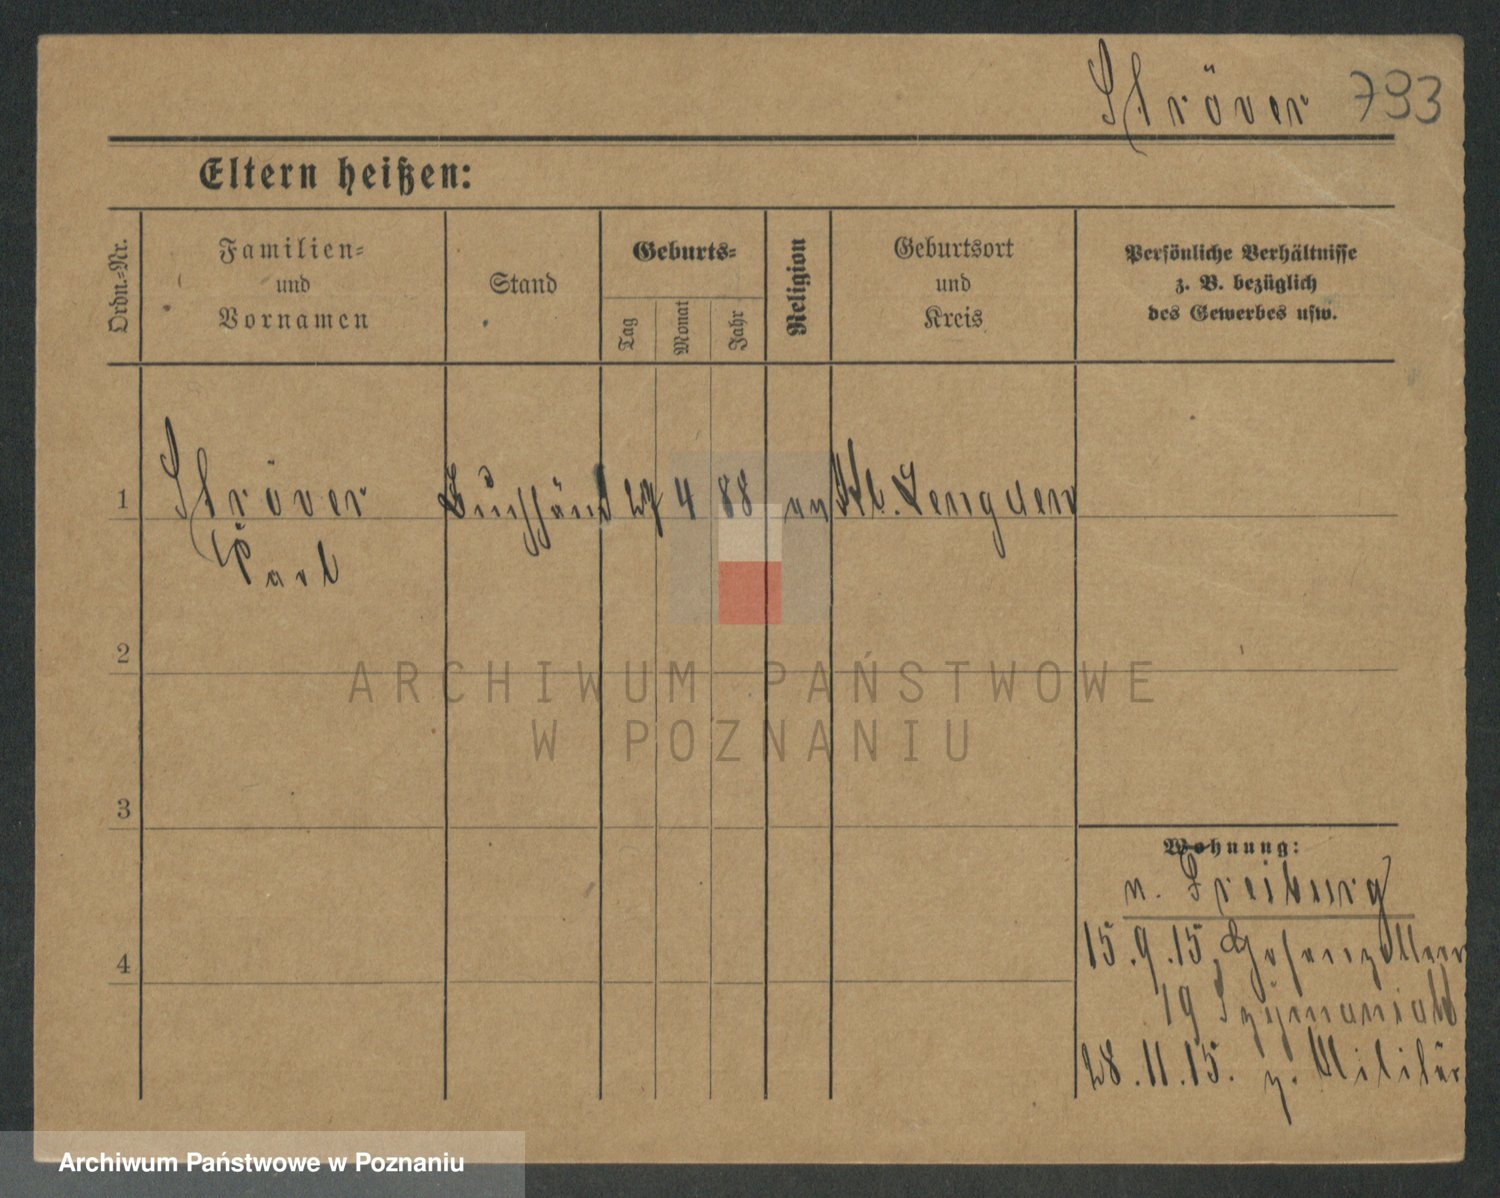 Ströver 793
Eltern heißen:
Ordn.=Nr.
Familien=
und
Vornamen
Stand
Geburts=
Tag
Monat
Jahr
Religion
Geburtsort
und
Kreis
Persönliche Verhältnisse
z. B. bezüglich
des Gewerbes usw.
1 Ströver Buchhänd 27 4 88 Kl. Lengden
Carl
2
3
4
Wohnung:
n. Freiburg
15.9.15. Hohenzollern
19 Szymaniak
28.11.15. z. Militär
ARCHIWUM PAŃSTWOWE
W POZNANIU
Archiwum Państwowe w Poznaniu